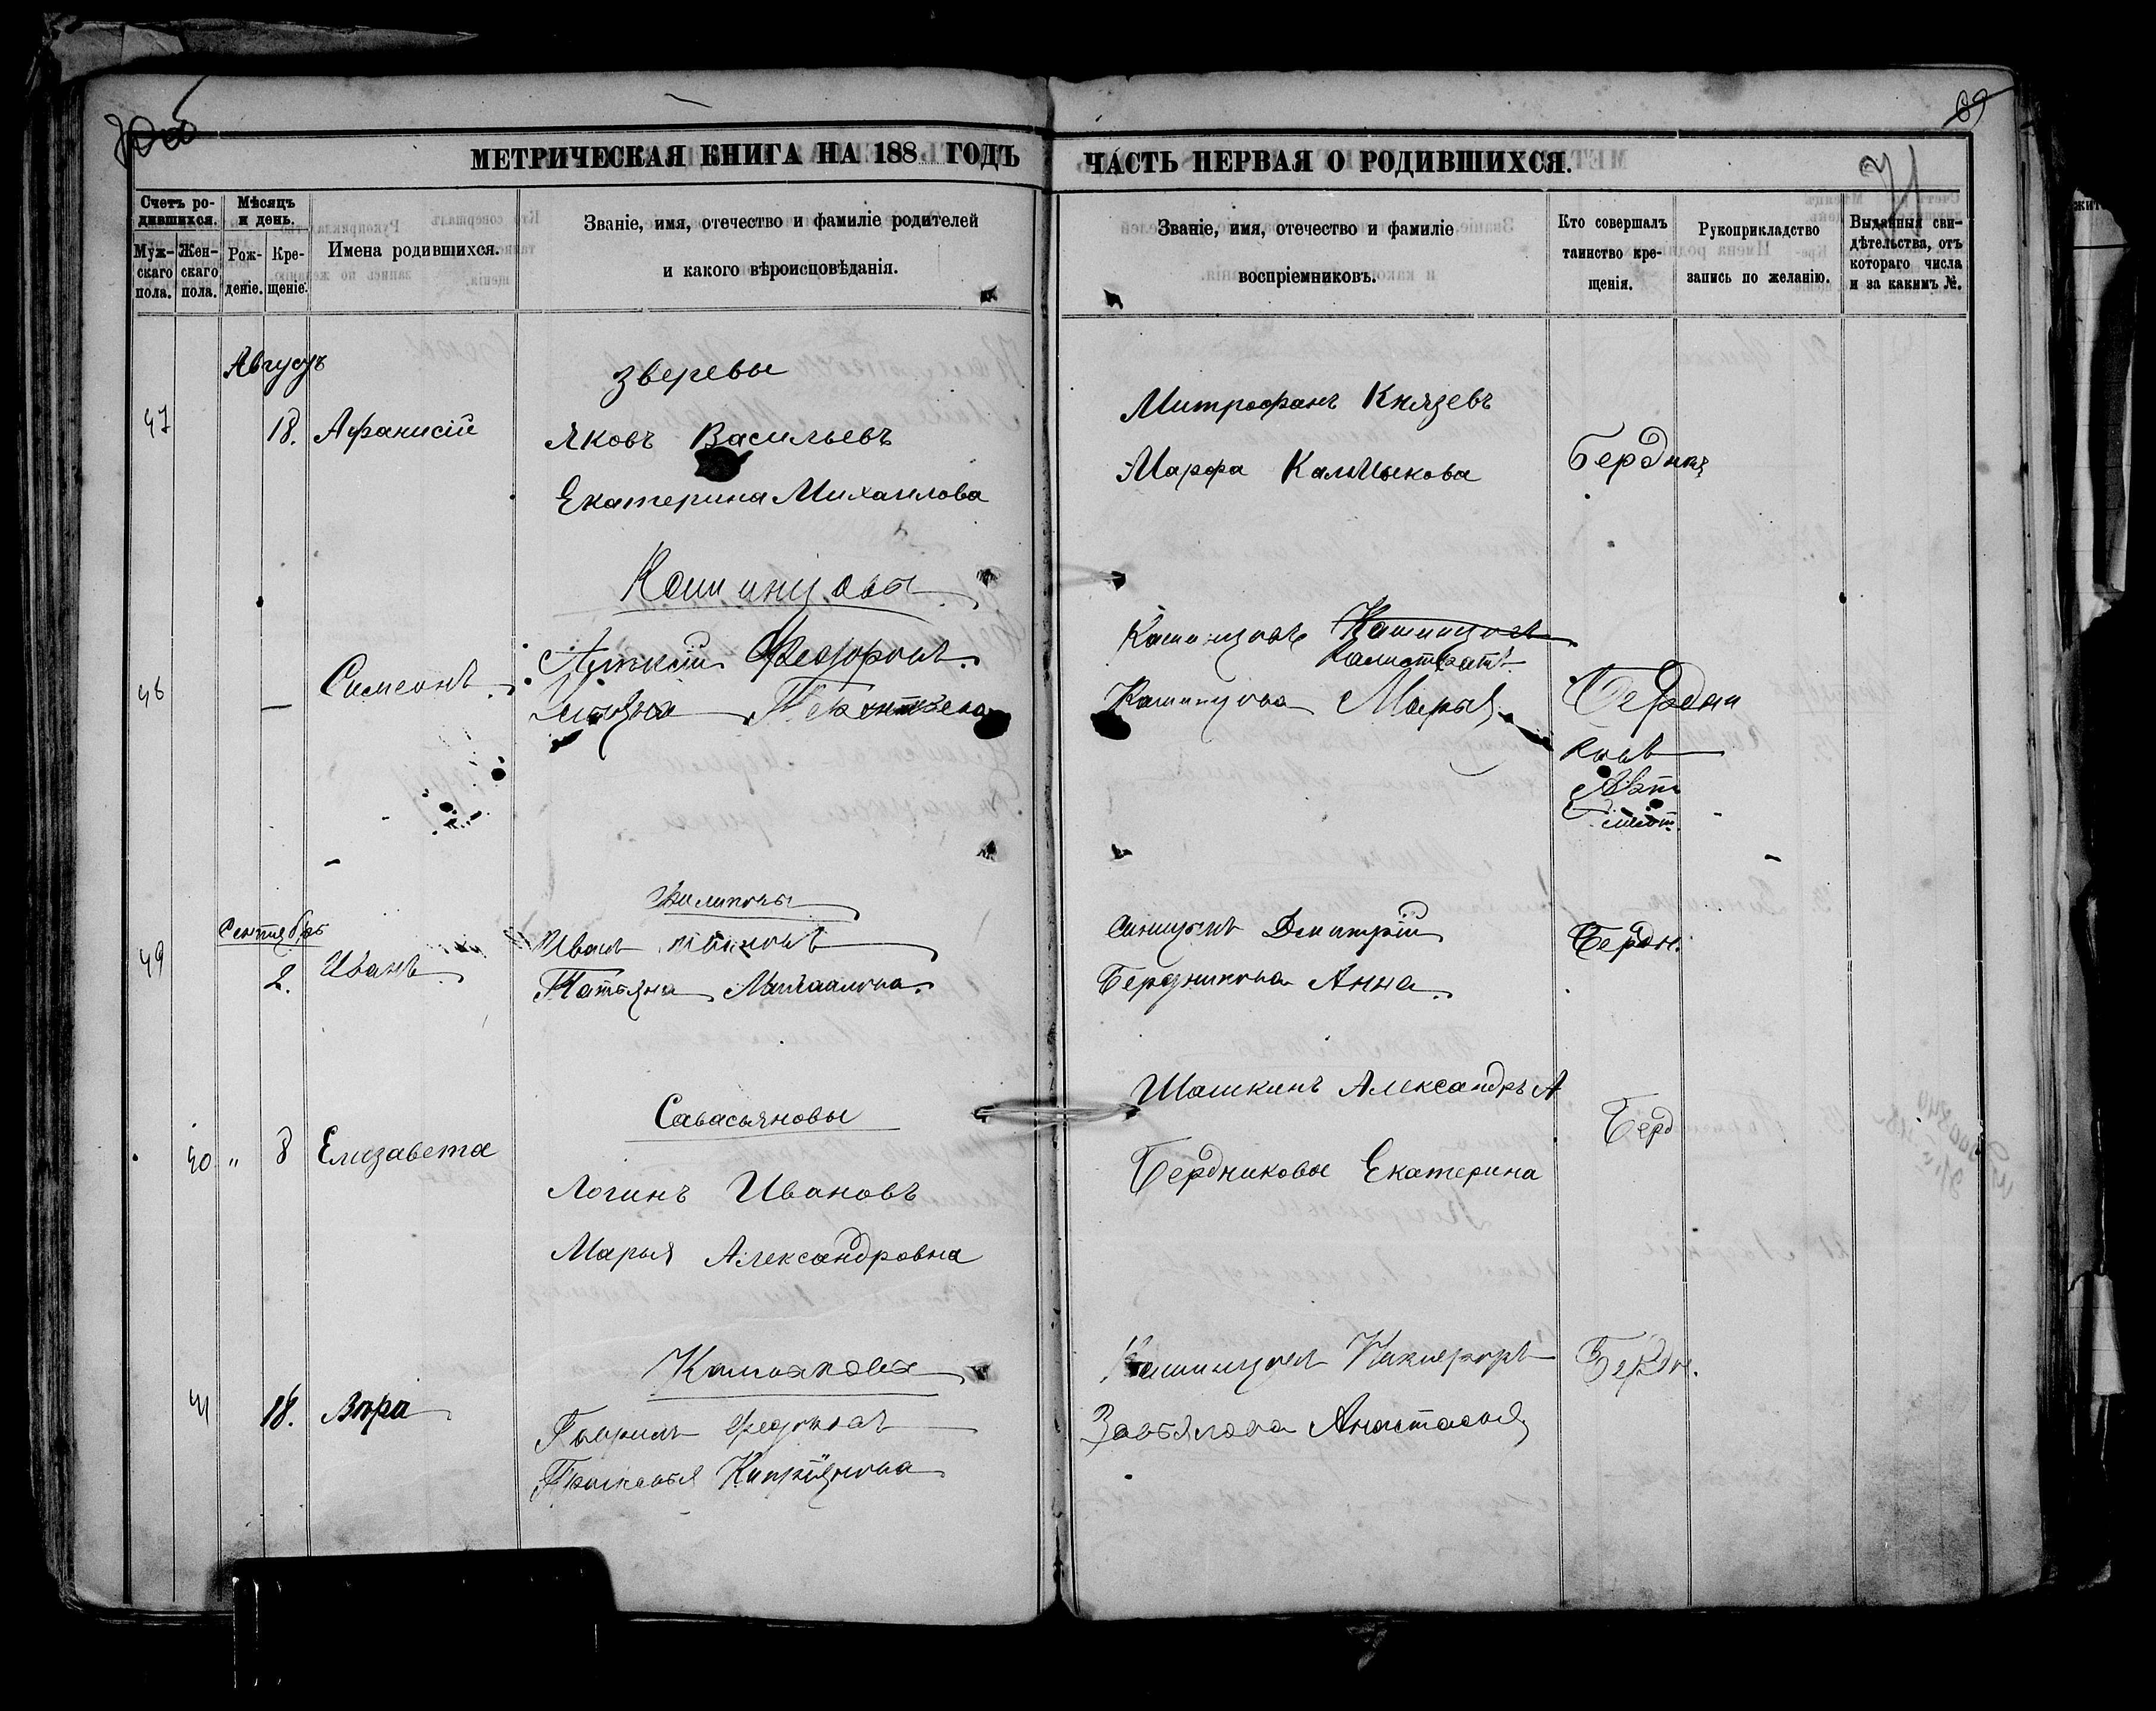 69
МЕТРИЧЕСКАЯ КНИГА НА 188 ГОДЪ
ЧАСТЬ ПЕРВАЯ О РОДИВШИХСЯ.
Счетъ ро-
дившихся.
Муж-
скаго
пола.
Жен-
скаго
пола.
Мѣсяцъ
и день.
Рож-
деніе.
Кре-
щеніе.
Имена родившихся.
Званіе, имя, отечество и фамиліе родителей
и какого вѣроисповѣданія.
Званіе, имя, отечество и фамиліе
воспріемниковъ.
Кто совершалъ
таинство кре-
щенія.
Рукоприкладство
запись по желанію.
Выданныя сви-
дѣтельства, отъ
котораго числа
и за какимъ №.
Августъ
Зверевы
47 18. Афанисій
Яковъ Васильевъ
Екатерина Михаилова
Митрофанъ Князевъ
Марфа Калмыкова
Бердник
Кошинцовы
48 — Симеонъ
Федоровъ
Кашинцовъ Кашинцовъ
Калистратъ
Кашинцова Марья
Бердни
ковъ
Сентябрь
Филиповы
49 2. Иванъ
Иванъ
Татьяна Михаилова
Синцовъ Дмитрій
Бердникова Анна
Бердн.
Савасьяновы
40 " 8 Елизавета
Логинъ Ивановъ
Марья Александровна
Шашкинъ Александръ А
Бердниковы Екатерина
Берд
41 18. Вѣра
Гаврилъ
Кипріянова
Кашинцовъ Никифоръ
Завьялова Анастасья
Бердн.